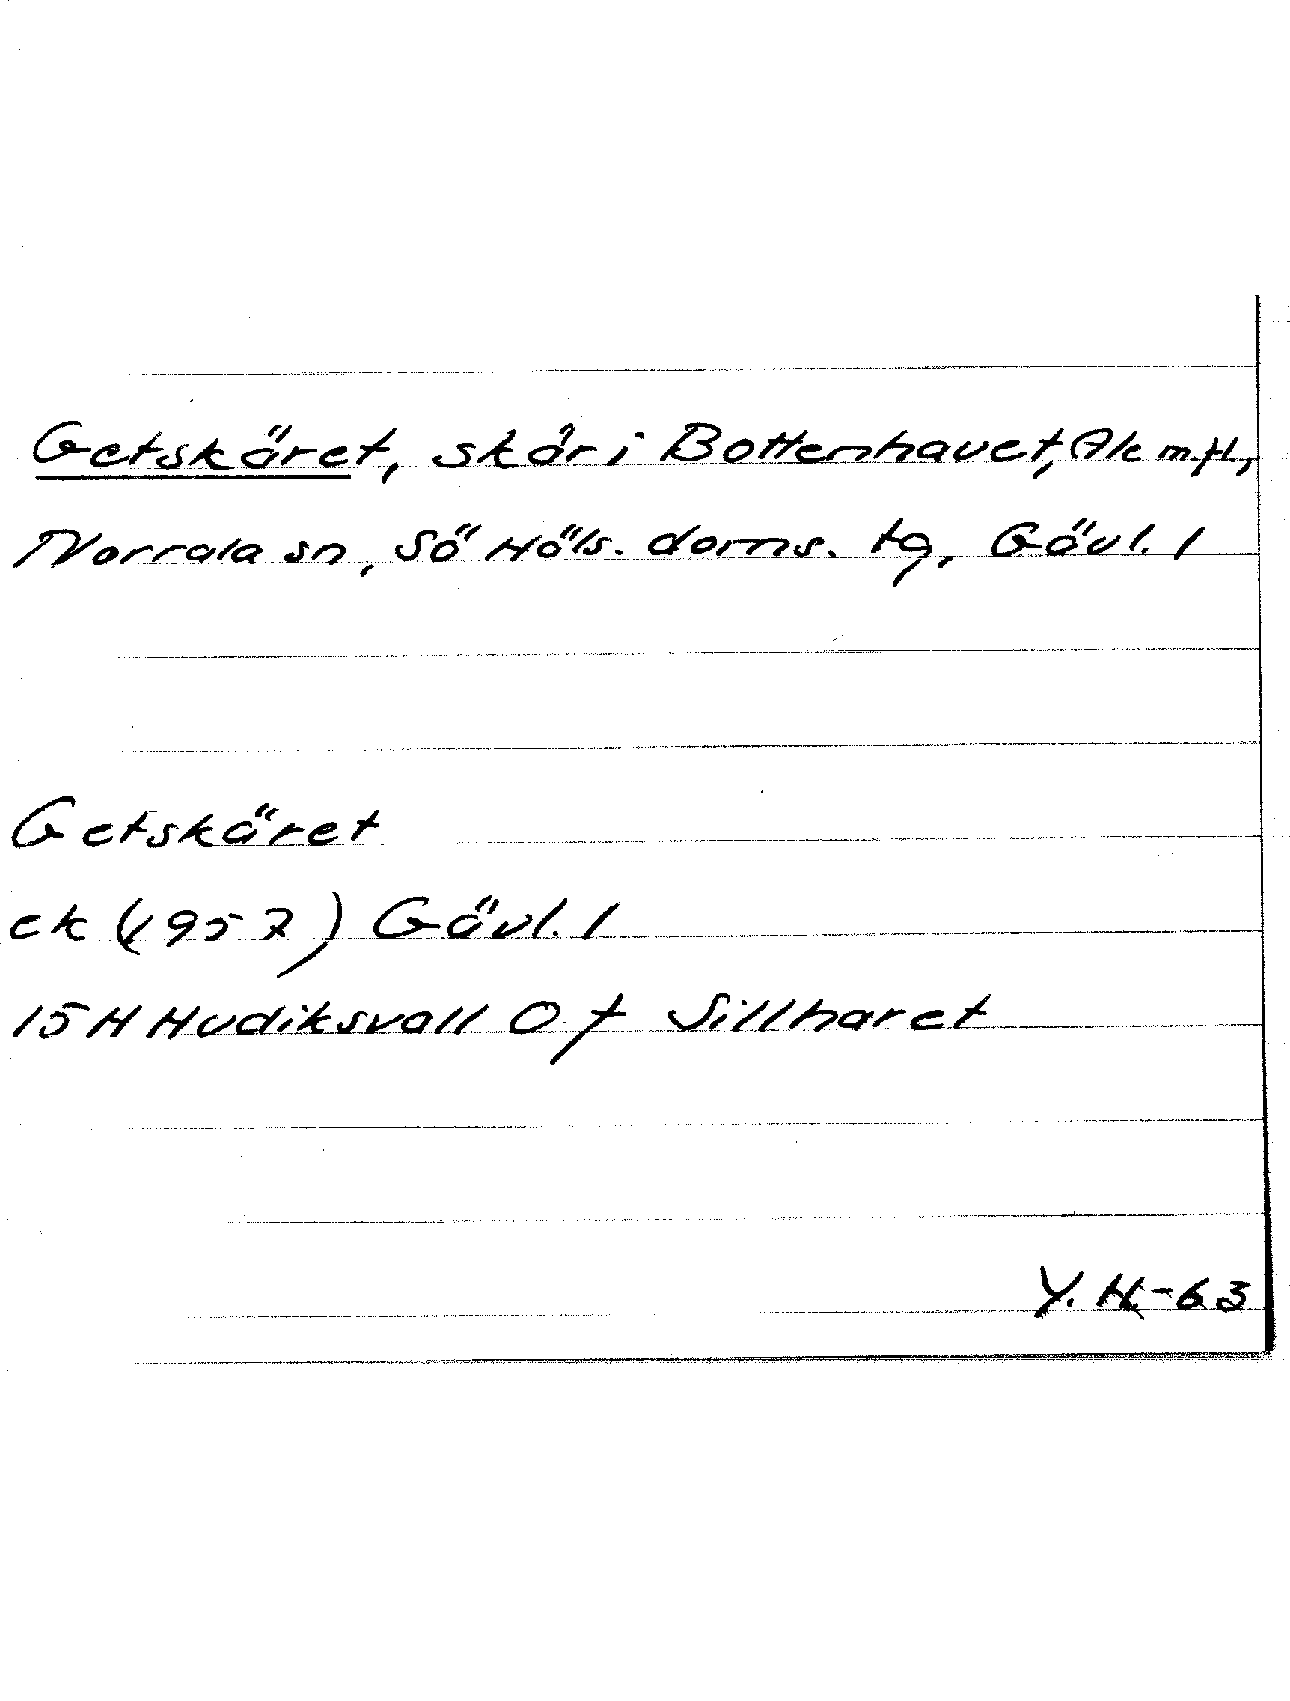 Getskäret, skär i Bottenhavet, Ale m.fl.,
Norrala sn, Sö Häls. doms. tg, Gävl. l
Getskäret
ek (1957) Gävl. l
15H Hudiksvall O f Sillharet
Y. H.-63